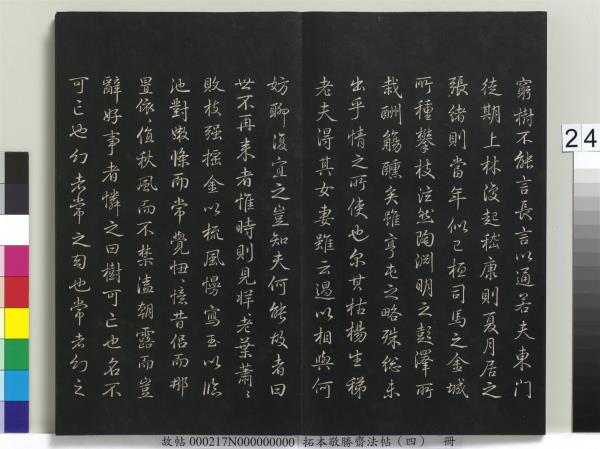 窮樹不能言長言以通若夫東門
徒期上林復起嵇康則夏月居之
張緒則當年似已桓司馬之金城
所種攀枝泫然陶淵明之彭澤所
栽酬觴醺矣雖亨屯之略殊總未
出乎情之所使也尔其枯楊生稊
老夫得其女妻雖云過以相與何
妨聊復宜之豈知夫何能故者曰
世不再来者惟時則見牂老葉蕭〻
敗枝强搖金以梳風慢寫玉以臨
池對嫩條而常覺忸憶昔侶而那
置依值秋風而不禁溘朝露而豈
辭好事者憐之曰樹可已也名不
可已也幻者常之匄也常者幻之
24
故帖 000217N000000000 拓本敬勝齋法帖（四） 冊